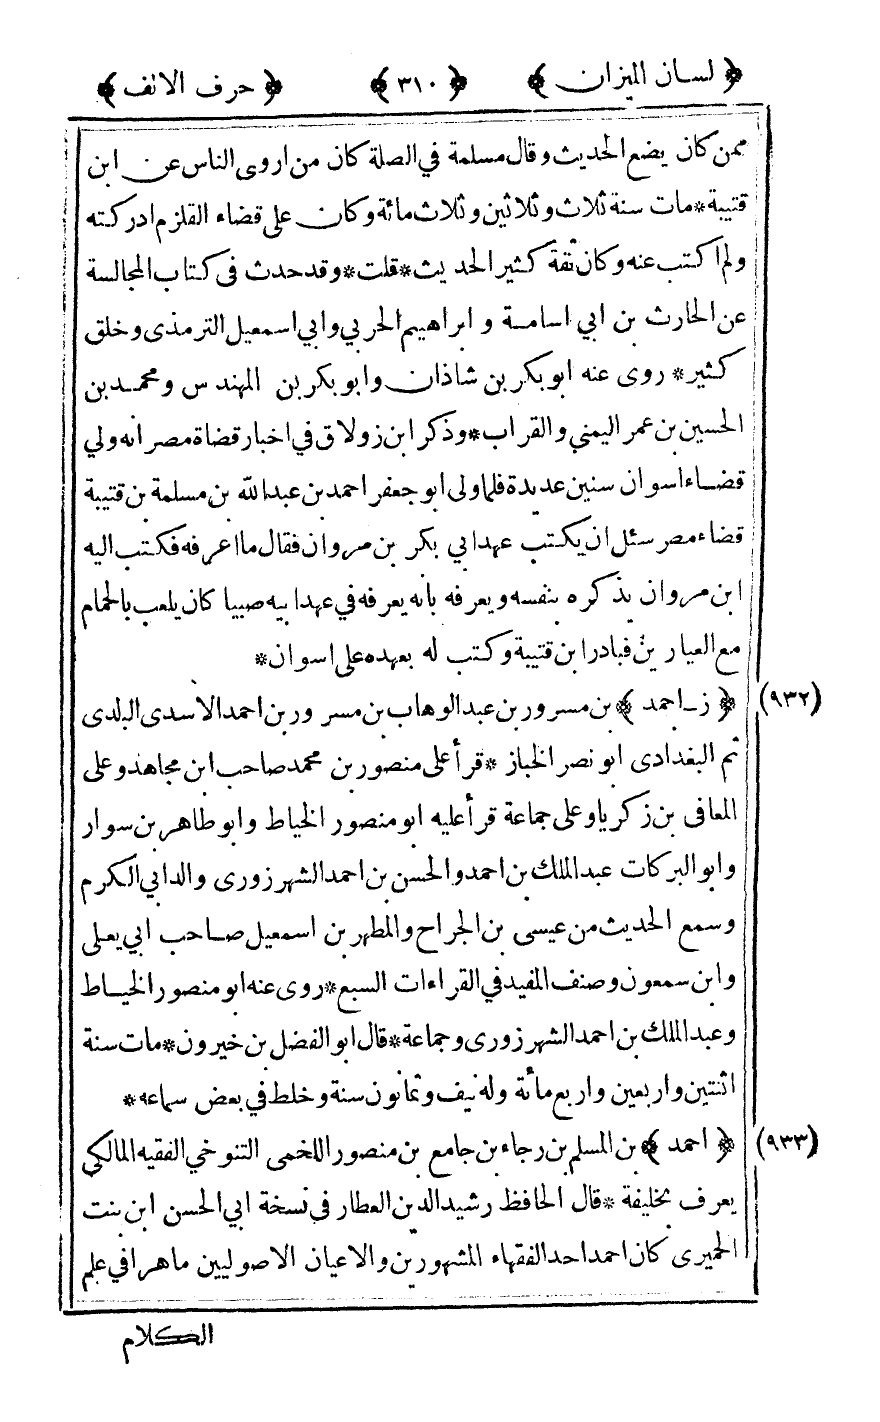 ﴿ لسان الميزان ﴾ ﴿ ٣١٠ ﴾ ﴿ حرف الالف ﴾
ممن كان يضع الحديث وقال مسلمة في الصلة كان من اروى الناس عن ابن
قتيبة * مات سنة ثلاث وثلاثين وثلاث مائة وكان على قضاء القلزم ادركته
ولم اكتب عنه وكان ثقة كثير الحديث * قلت * وقد حدث فى كتاب المجالسة
عن الحارث بن ابي اسامة و ابراهيم الحربي وابي اسمعيل الترمذى وخلق
كثير * روى عنه ابو بكر بن شاذان وابو بكر بن المهندس ومحمد بن
الحسين بن عمر اليمني والقراب * وذكر ابن زولاق في اخبار قضاة مصر انه ولي
قضاء اسوان سنين عديدة فلما ولى ابو جعفر احمد بن عبد الله بن مسلمة بن قتيبة
قضاء مصر سئل ان يكتب عهد ابي بكر بن مروان فقال ما اعرفه فكتب اليه
ابن مروان يذكره بنفسه ويعرفه بانه يعرفه في عهد ابيه صبيا كان يلعب بالحمام
مع العيارين فبادر ابن قتيبة وكتب له بعهده على اسوان *
﴿ ز ـ احمد ﴾ بن مسرور بن عبد الوهاب بن مسرور بن احمد الاسدى البلدى (٩٣٢)
ثم البغدادى ابو نصر الخباز * قرأ على منصور بن محمد صاحب ابن مجاهد وعلى
المعافى بن زكريا وعلى جماعة قرأ عليه ابو منصور الخياط وابو طاهر بن سوار
وابو البركات عبد الملك بن احمد والحسن بن احمد الشهرزورى والد ابي الكرم
وسمع الحديث من عيسى بن الجراح والمطهر بن اسمعيل صاحب ابي يعلى
وابن سمعون وصنف المفيد في القراءات السبع * روى عنه ابو منصور الخياط
وعبد الملك بن احمد الشهرزورى وجماعة * قال ابو الفضل بن خيرون * مات سنة
اثنتين واربعين واربع مائة وله نيف وثمانون سنة وخلط في بعض سماعه *
﴿ احمد ﴾ بن المسلم بن رجاء بن جامع بن منصور اللخمى التنوخي الفقيه المالكي (٩٣٣)
يعرف بخليفة * قال الحافظ رشيد الدين العطار في نسخة ابي الحسن ابن بنت
الحميرى كان احمد احد الفقهاء المشهورين والاعيان الاصوليين ماهرا في علم
الكلام